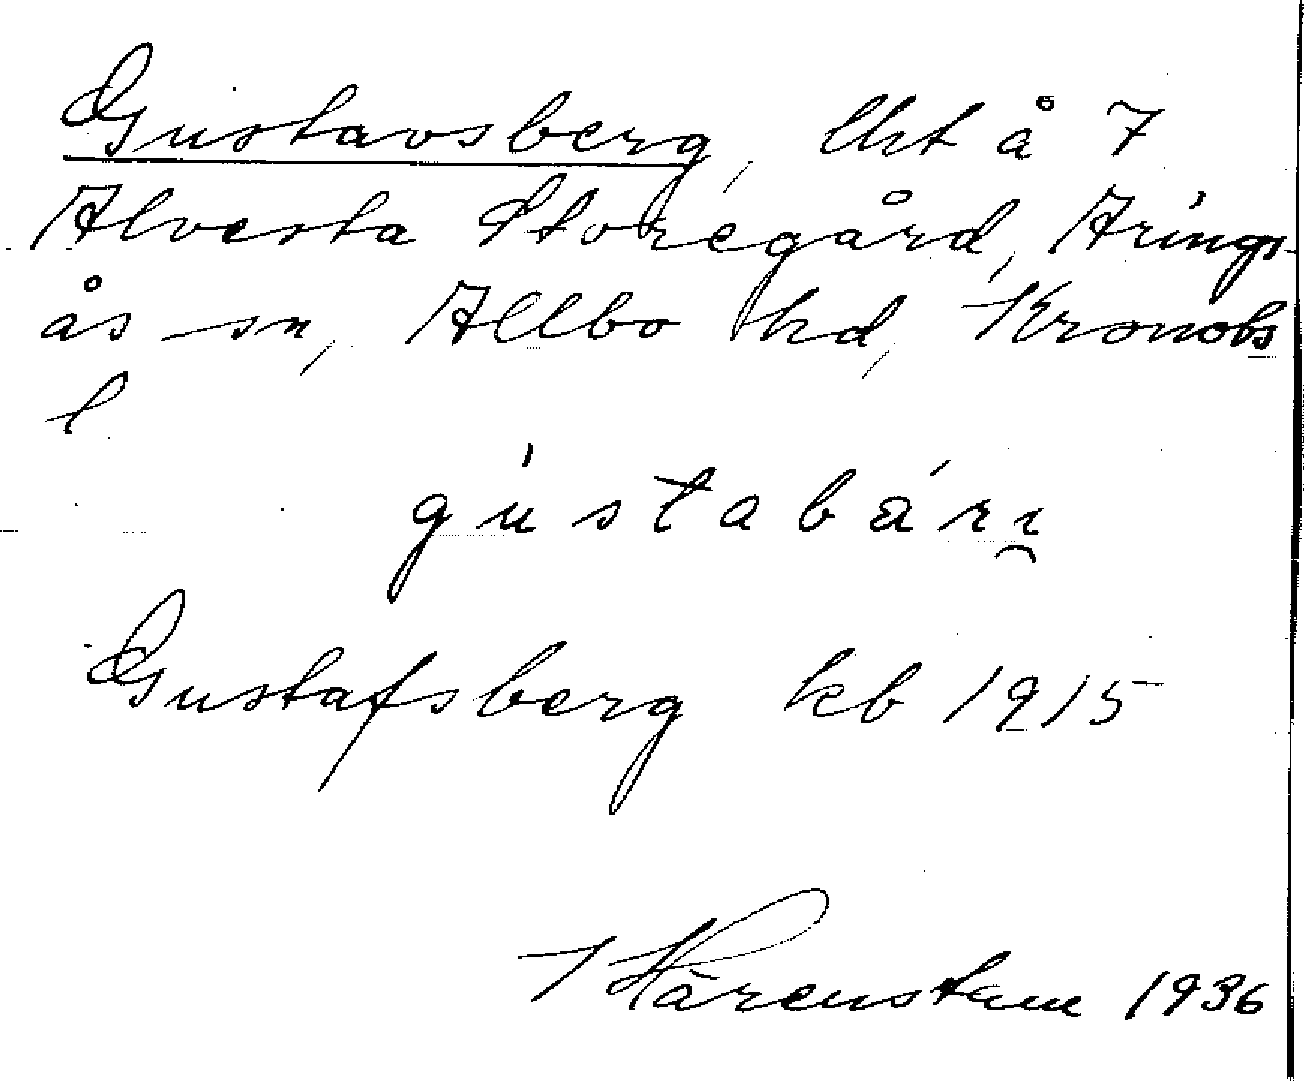 Gustavsberg, lht å 7
Alvesta Storegård, Arings-
ås sn, Allbo hd, Kronobs
l
gústabár
Gustafsberg kb 1915
1936